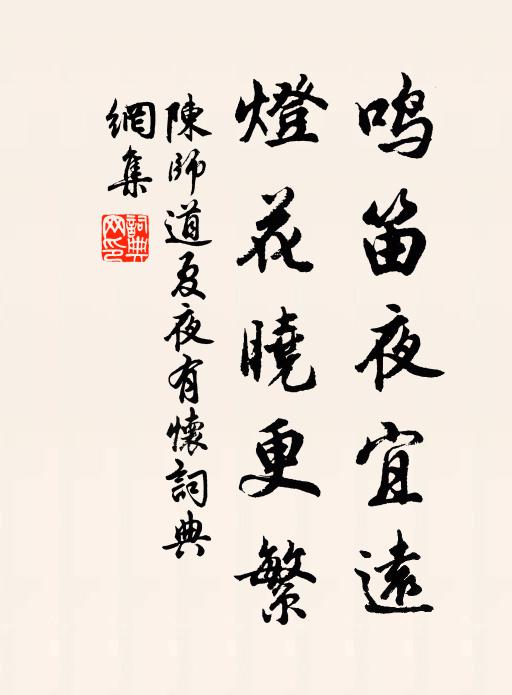 鸣笛夜宜遠
燈花曉更繁
陳師道夏夜有懷詞典
網集
詞典
网印